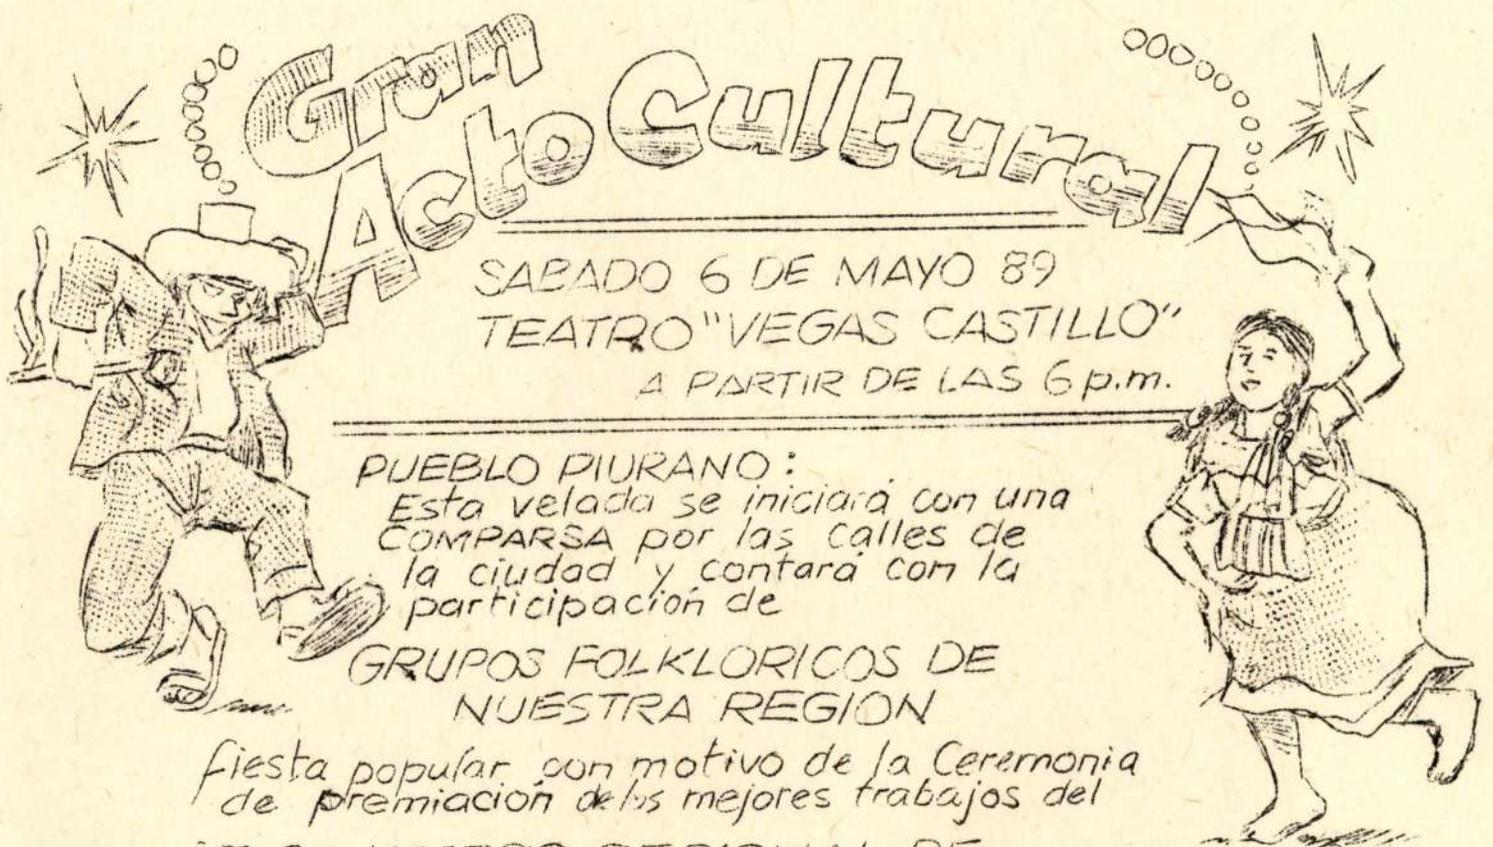 Gran
Acto Cultural
SABADO 6 DE MAYO 89
TEATRO "VEGAS CASTILLO"
A PARTIR DE LAS 6 p.m.
PUEBLO PIURANO:
Esta velada se iniciará con una
COMPARSA por las calles de
la ciudad y contará con la
participación de
GRUPOS FOLKLORICOS DE
NUESTRA REGION
fiesta popular con motivo de la Ceremonia
de premiación de los mejores trabajos del
DE